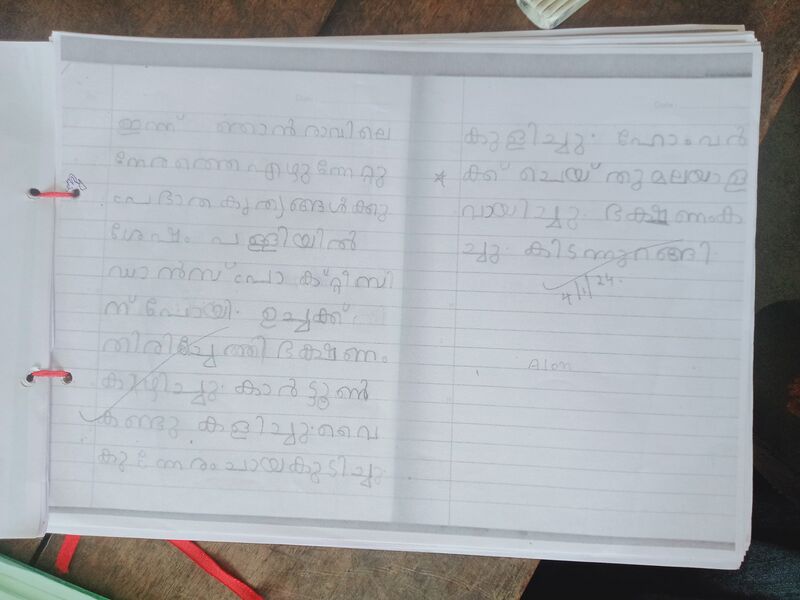 ഇന്ന് ഞാൻ രാവിലെ
നേരത്തെ എഴുന്നേറ്റു
പ്രഭാത കൃത്യങ്ങൾക്കു
ശേഷം പള്ളിയിൽ
ഡാൻസ് പ്രാക്റ്റീസി
ന് പോയി. ഉച്ചക്ക്
തിരിച്ചെത്തി ഭക്ഷണം
കഴിച്ചു. കാർട്ടൂൺ
കണ്ടു കളിച്ചു. വൈ
കുന്നേരം ചായ കുടിച്ചു
കുളിച്ചു. ഹോംവർ
ക്ക് ചെയ്തു മലയാള
വായിച്ചു. ഭക്ഷണം ക
ച്ചു. കിടന്നുറങ്ങി.
4/1/24.
Alon